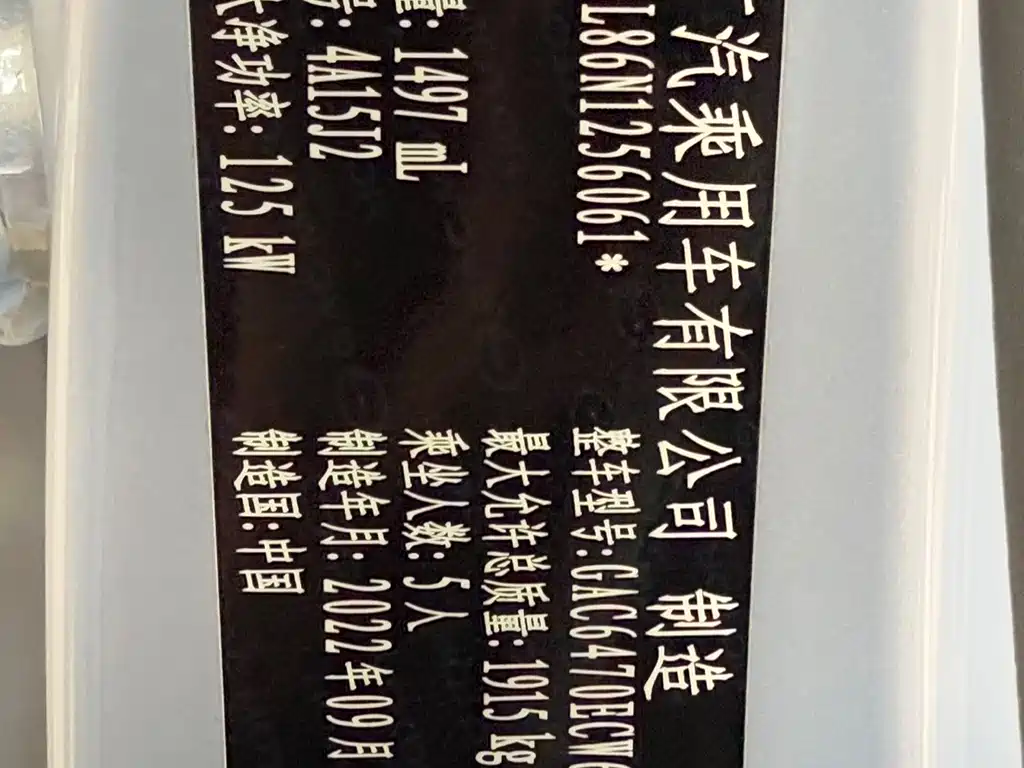 汽乘用车有限公司 制造
L86N1256061* 整车型号:GAC6470ECW
最大允许总质量:1915kg
量: 1497 mL 乘坐人数:5人
4A15J2 制造年月: 2022年09月
大净功率: 125 kW 制造国:中国